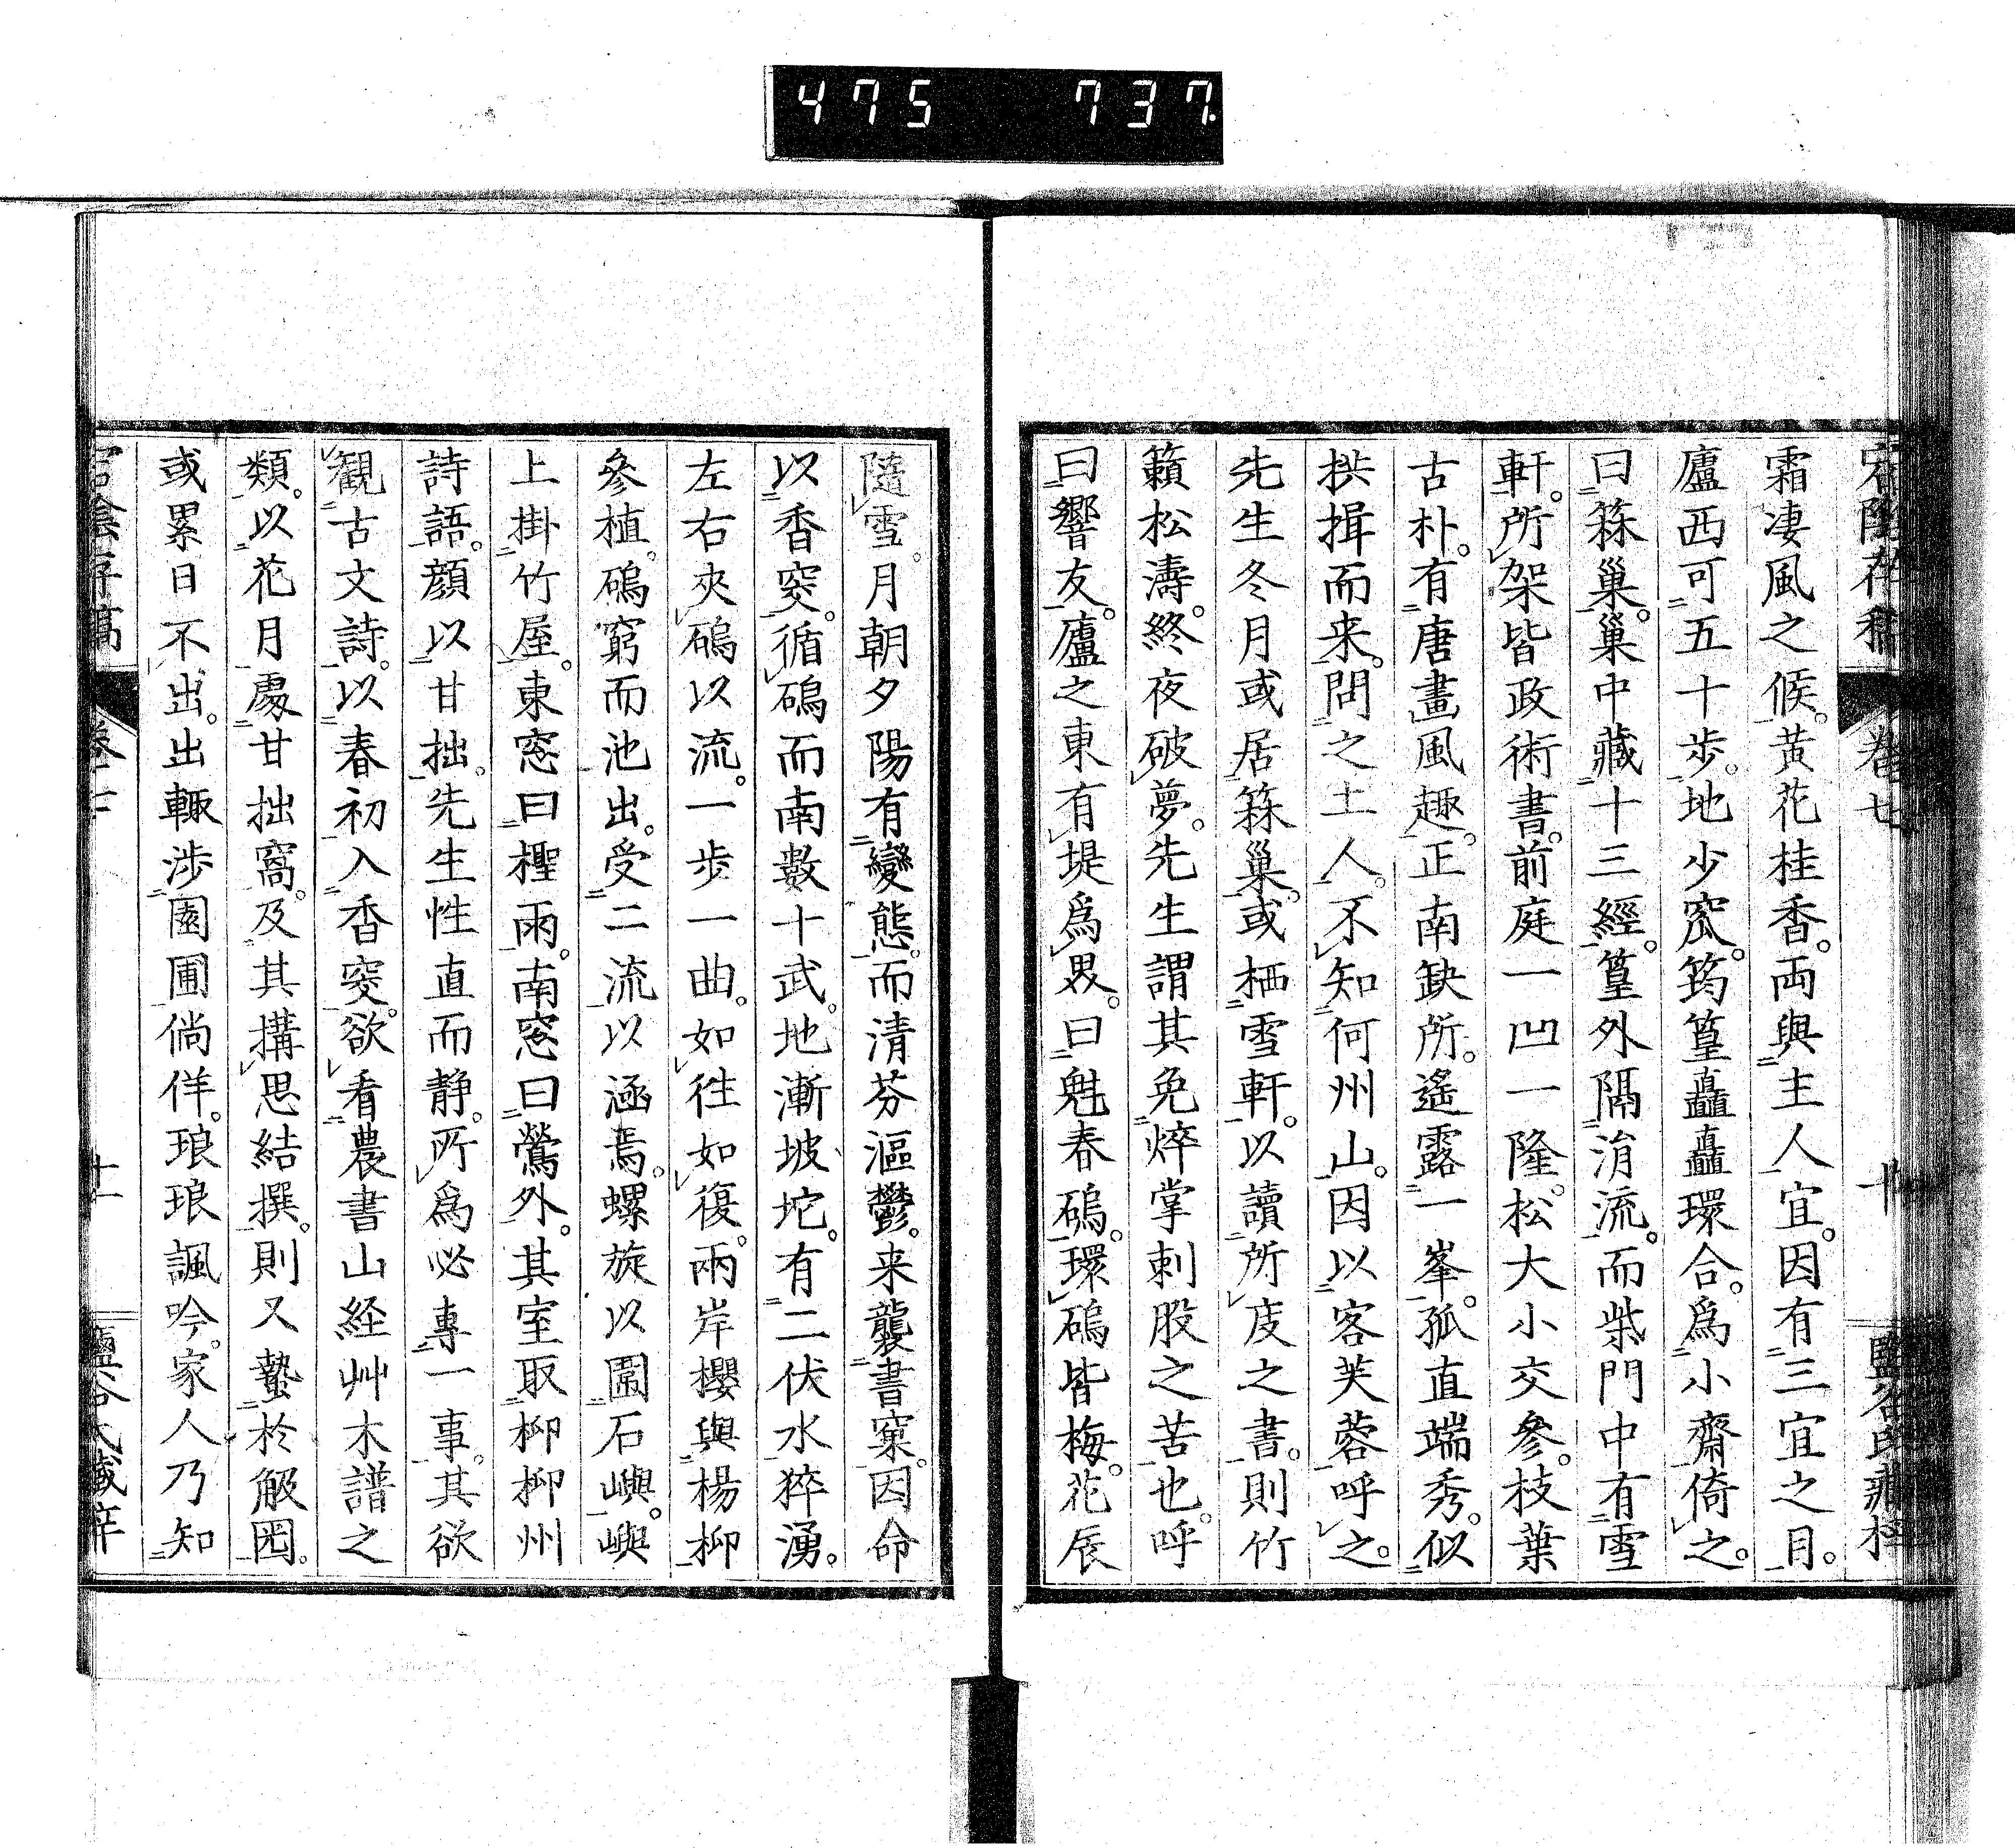 475 737.
宕陰存稿 卷七 十
霜凄風之候。黄花桂香。両與主人宜。因有三宜之目。
廬西可五十步。地少窊。筠篁矗矗環合。爲小齋倚之。
曰箖巢。巢中藏十三經。篁外隔涓流。而柴門中有雪
軒。所架皆政術書。前庭一凹一隆。松大小交參。枝葉
古朴。有唐畫風趣。正南缺所。遙露一峯。孤直端秀。似
拱揖而来。問之土人。不知何州山。因以客芙蓉呼之。
先生冬月或居箖巢。或栖雪軒。以讀所庋之書。則竹
籟松濤。終夜破夢。先生謂其免焠掌刺股之苦也。呼
曰響友。廬之東有堤爲界。曰魁春磈。環磈皆梅。花辰
隨雪。月朝夕陽有變態。而清芬漚鬱。来襲書窠。因命
以香窔。循磈而南數十武。地漸坡坨。有二伏水猝湧。
左右夾磈以流。一步一曲。如往如復。兩岸櫻與楊柳
參植。磈窮而池出。受二流以涵焉。螺旋以圍石嶼。嶼
上掛竹屋。東窓曰檉雨。南窓曰鶯外。其室取柳柳州
詩語。顔以甘拙。先生性直而静。所爲必專一事。其欲
觀古文詩。以春初入香窔。欲看農書山経艸木譜之
類。以花月處甘拙窩。及其搆思結撰。則又蟄於般囦。
或累日不出。出輙渉園圃倘佯。琅琅諷吟。家人乃知